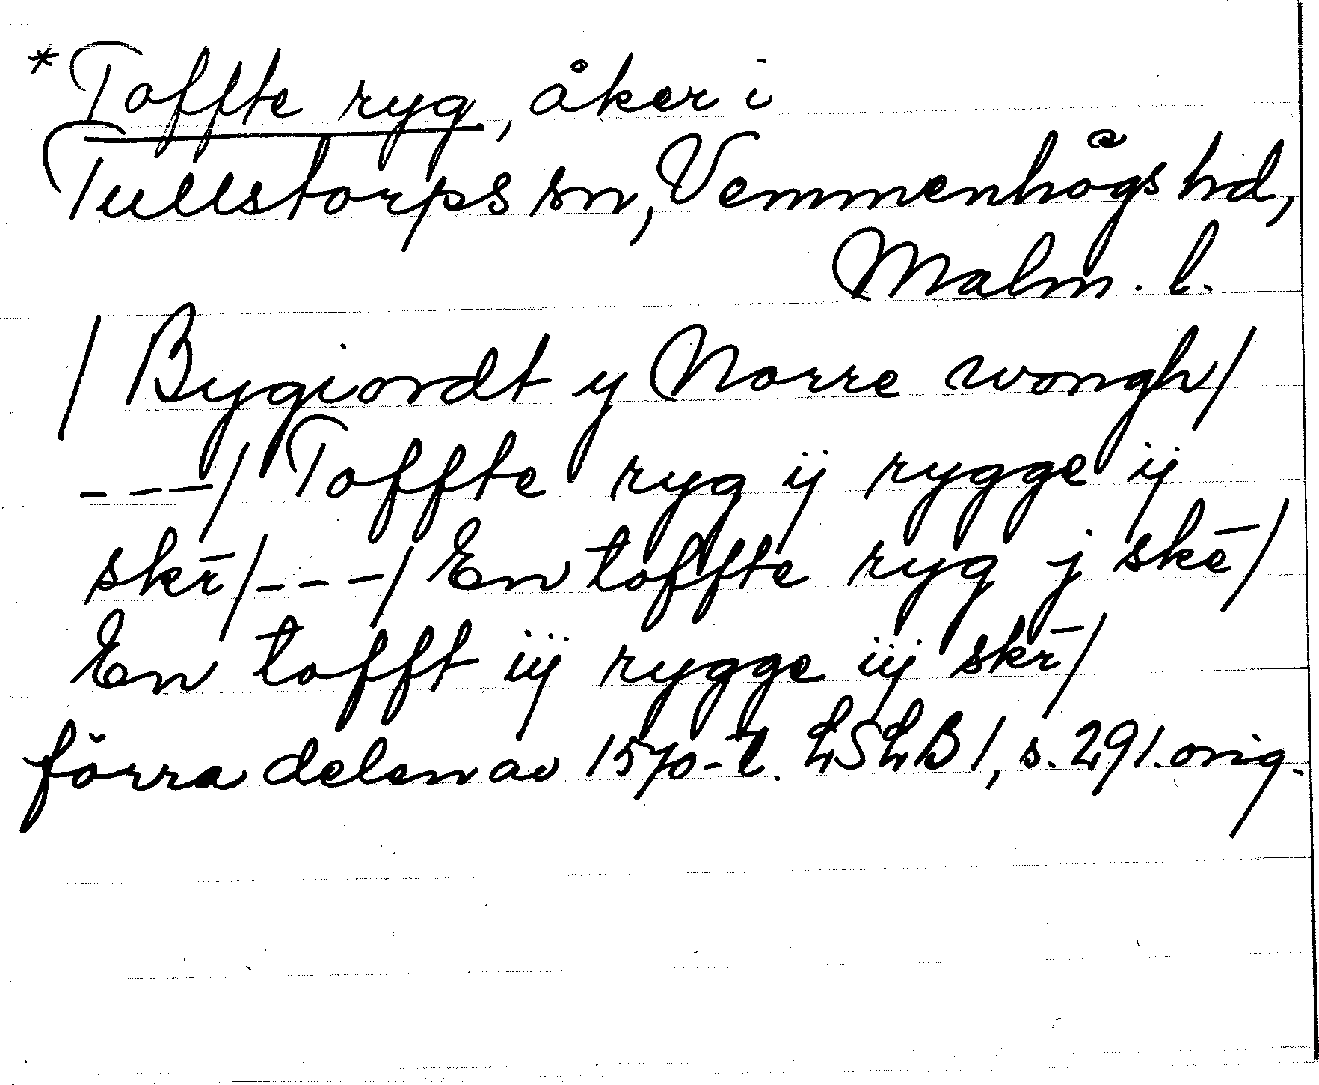 *Toffte ryg, åker i
Tullstorps sn, Vemmenhögs hd,
Malm. l.
/ Bygiordt y Norre wongh/
---/ Toffte ryg ij rygge ij
skr̄/---/ En toffte ryg j skē/
En tofft iij rygge iij skr̄/
förra delen av 1570-t. LSLB 1, s. 291. orig.